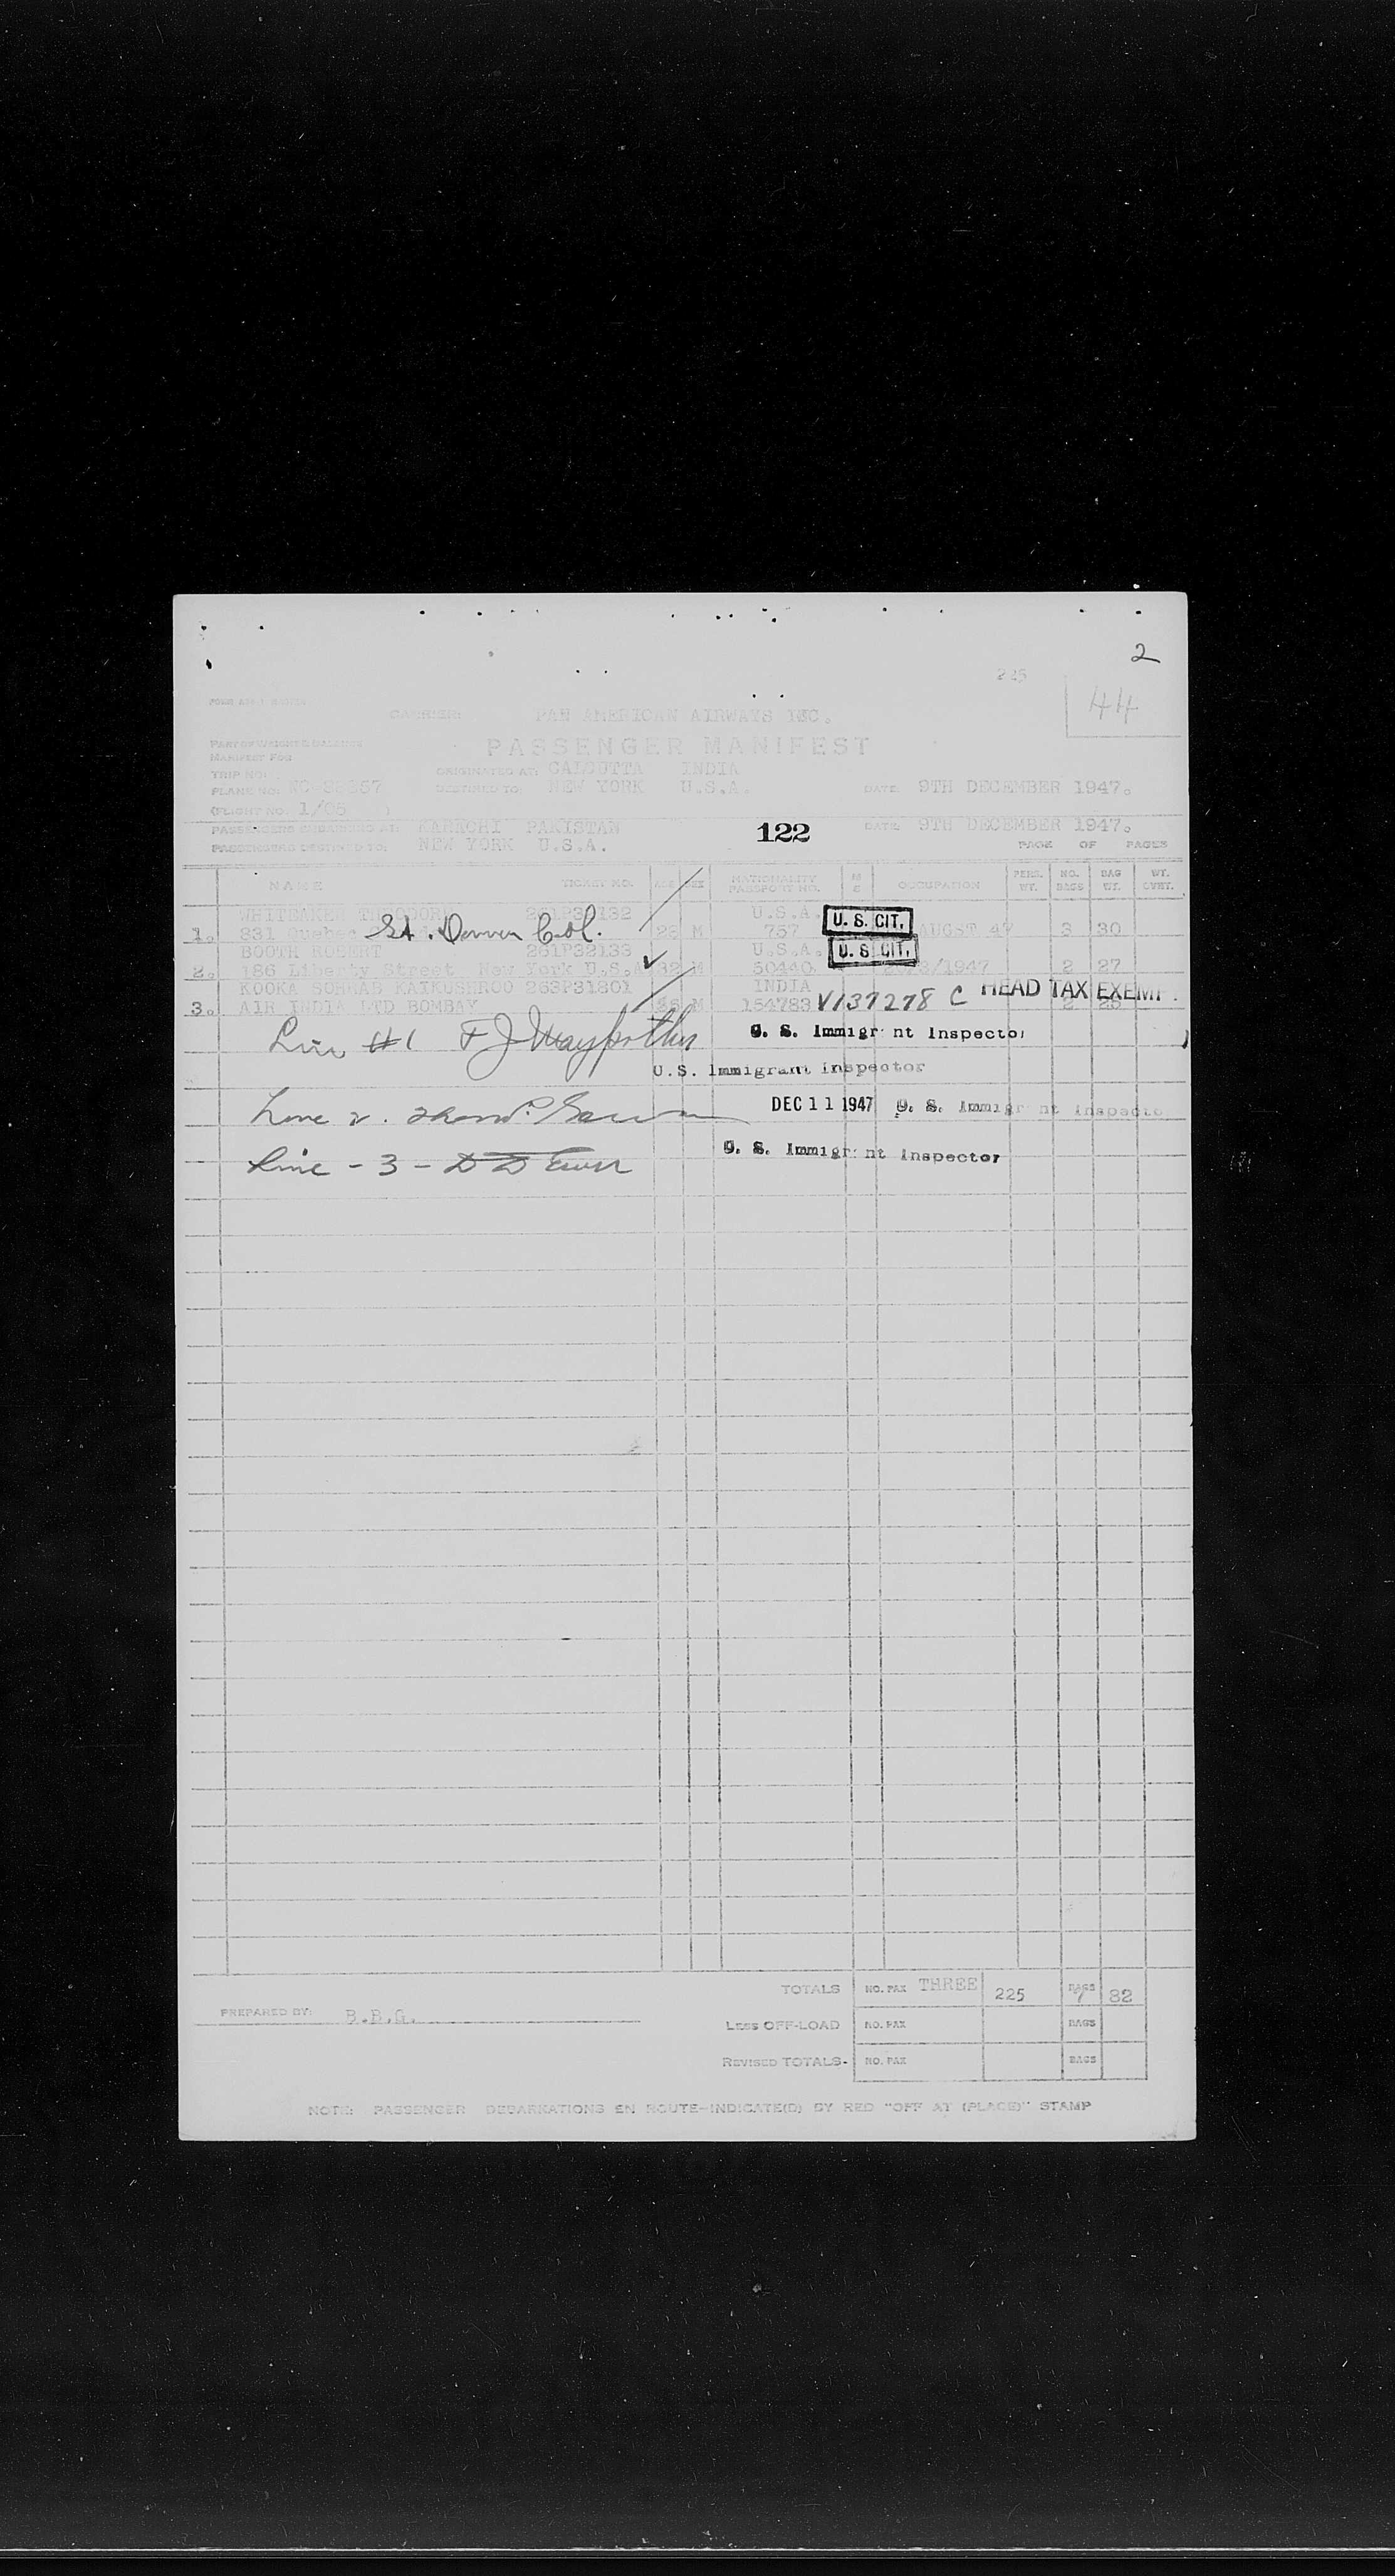 2
225
44
CARRIER: PAN AMERICAN AIRWAYS INC.
PART OF WEIGHT & BALANCE
MANIFEST FOR
PASSENGER MANIFEST
TRIP NO:
ORIGINATED AT: CALCUTTA INDIA
PLANE NO: NC-88857
DESTINED TO: NEW YORK U.S.A.
DATE: 9TH DECEMBER 1947.
(FLIGHT NO. 1/05 )
PASSENGERS EMBARKED AT: KARACHI PAKISTAN
122
DATE: 9TH DECEMBER 1947.
PASSENGERS DESTINED TO: NEW YORK U.S.A.
PAGE OF PAGES
NAME TICKET NO. AGE SEX NATIONALITY PASSPORT NO. M S OCCUPATION PERS. WT. NO. BAGS BAG WT. WT. OVHT.
WHITEAKER THEODORE 261P32132 U.S.A.
U. S. CIT.
1. 831 Quebec St. Denver Col. 28 M 757 AUGST 47 3 30
BOOTH ROBERT 261P32133 U.S.A.
U. S. CIT.
2. 186 Liberty Street New York U.S.A 32 M 50440 /1947 2 27
KOOKA SORRAB KAIKUSHROO 263P31801 INDIA
3. AIR INDIA LTD BOMBAY M 154783 V137278 C HEAD TAX EXEMPT. 2 25
Line #1 F J
U. S. Immigrant Inspector
U.S. Immigrant Inspector
Line 2.
DEC 11 1947 U. S. Immigrant Inspecto
Line - 3 - D D
U. S. Immigrant Inspector
TOTALS NO. PAX THREE 225 BAGS 7 82
PREPARED BY: B.B.G.
LESS OFF-LOAD NO. PAX BAGS
REVISED TOTALS- NO. PAX BAGS
NOTE: PASSENGER DEBARKATIONS EN ROUTE-INDICATE(D) BY RED "OFF AT (PLACE)" STAMP